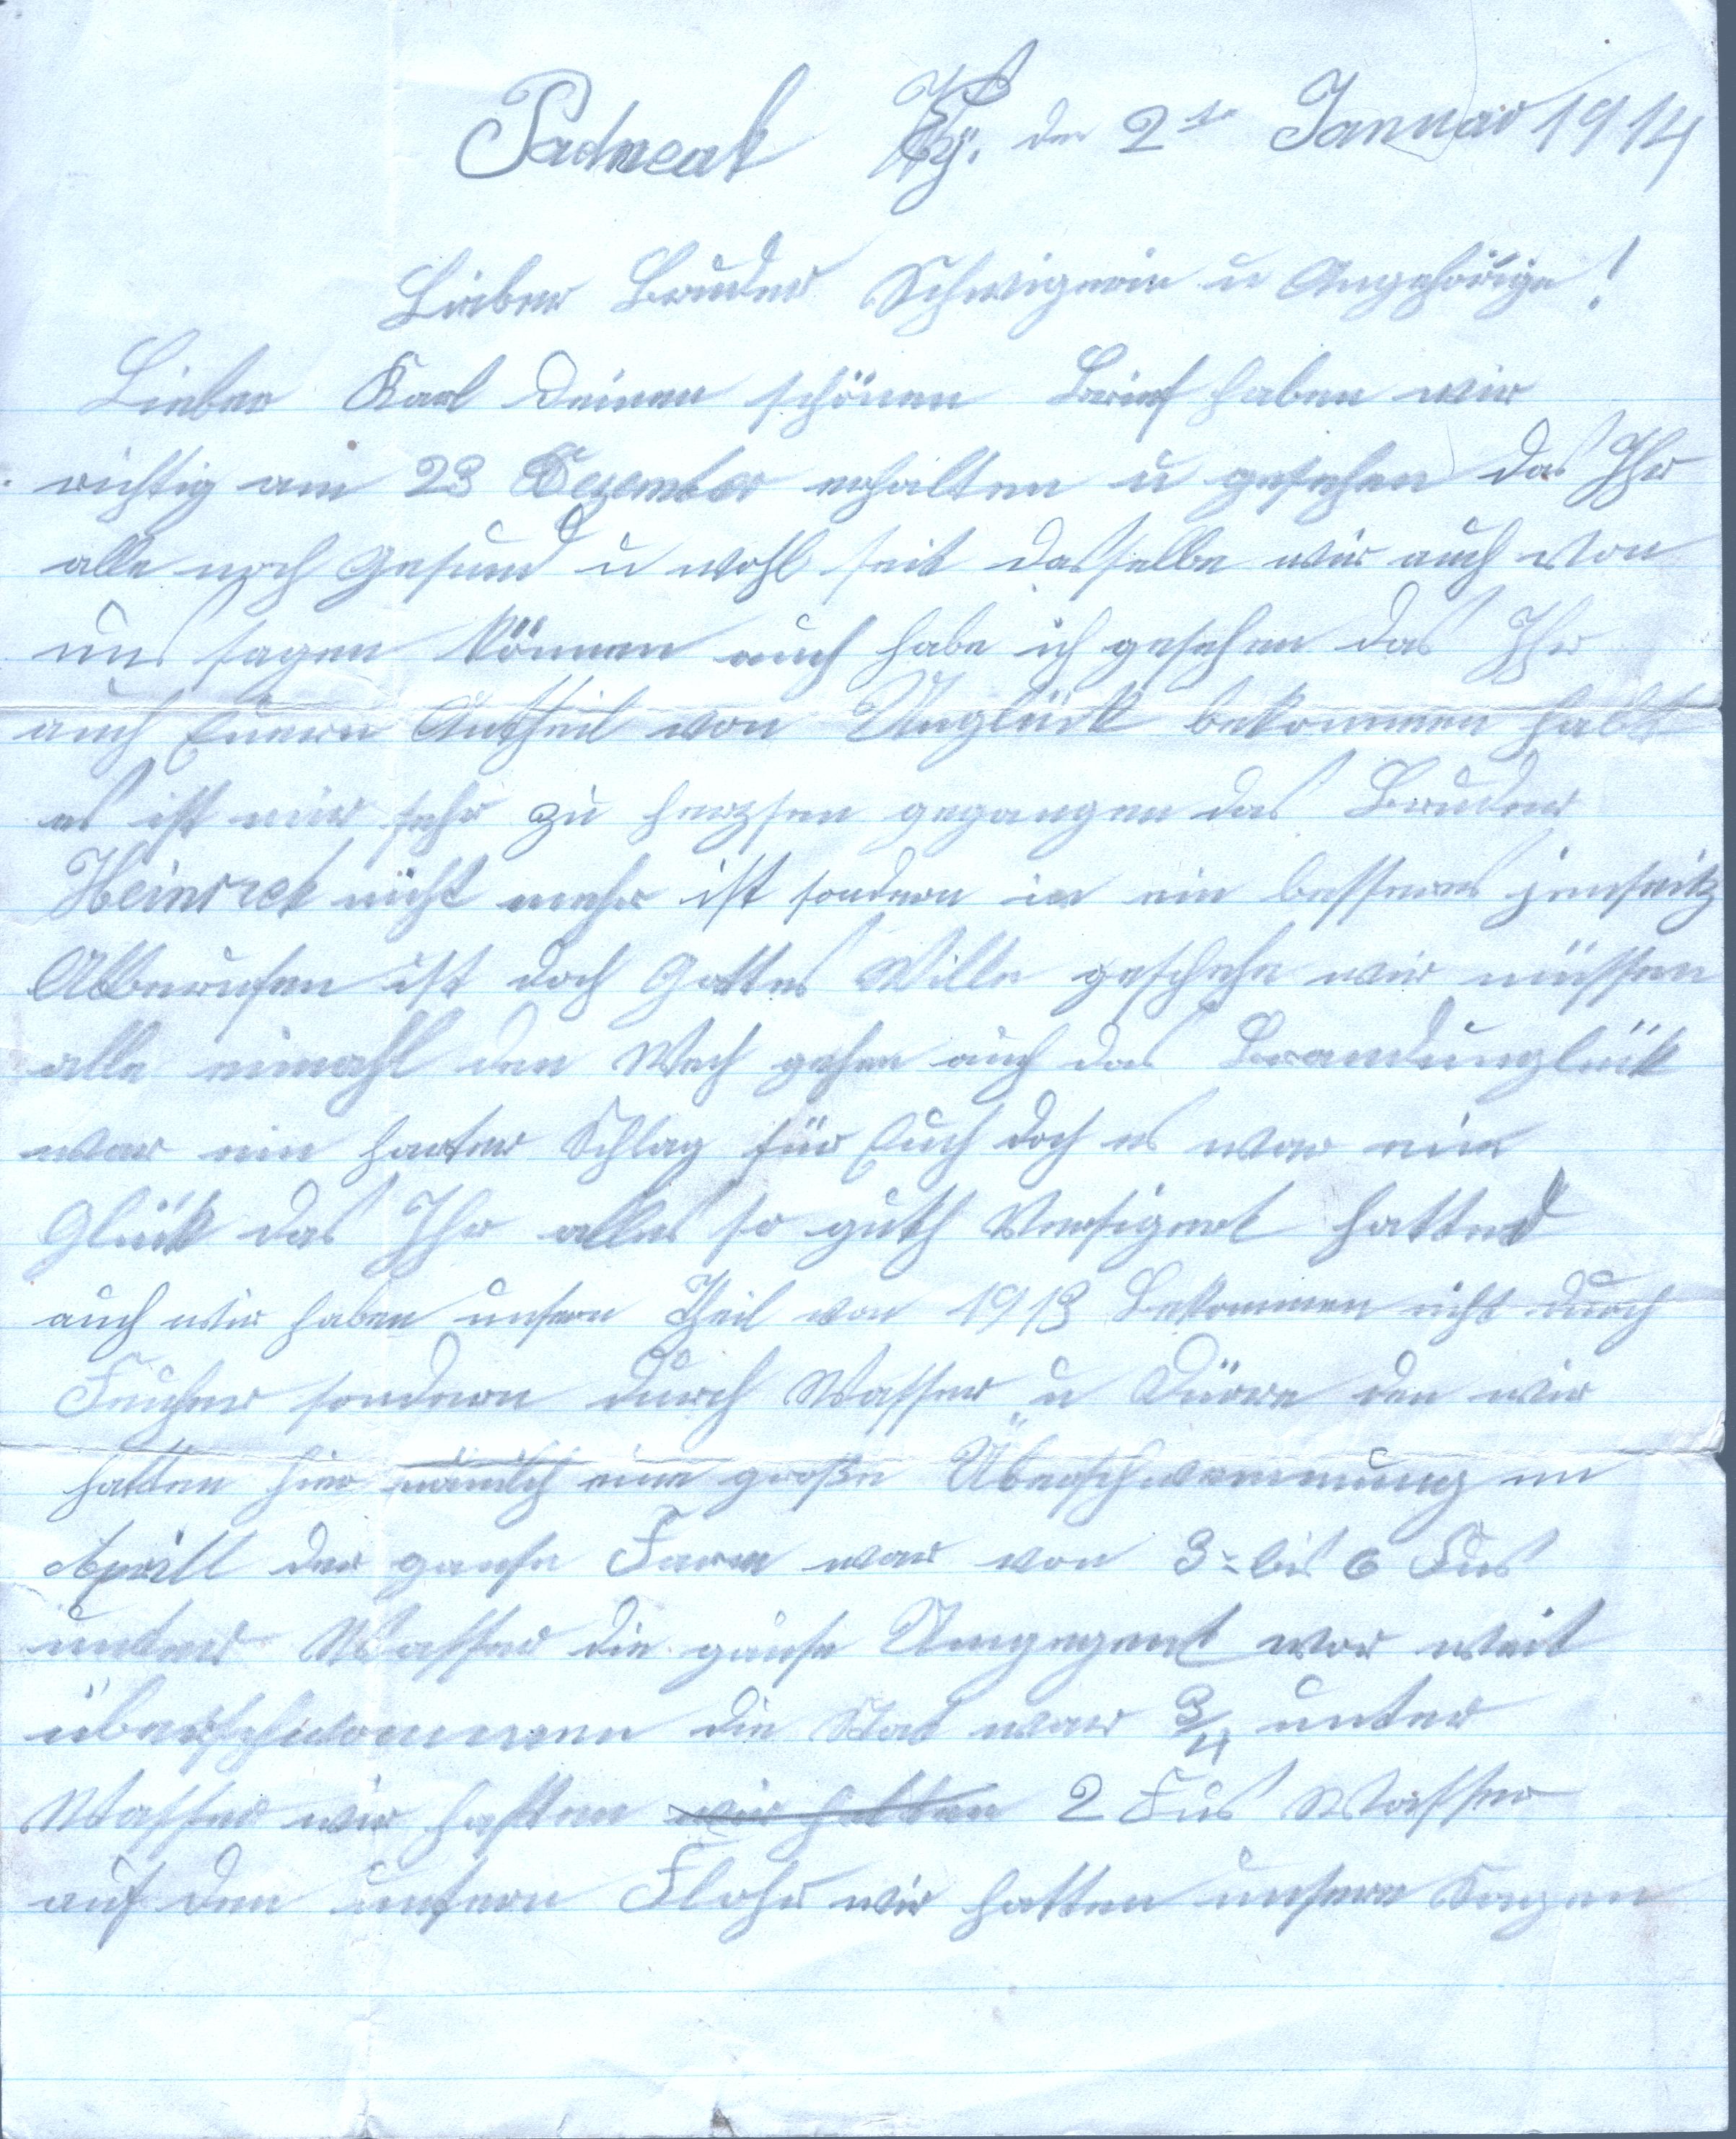 Paducah Ky. den 2te Januar 1914
Lieber Bruder Schwigerin u Angehörige!
Lieber Karl Deinen schönen Brief haben wir
richtig am 23 Dezember erhalten u gesehen das Ihr
alle noch Gesund u wohl seit dasselbe wir auch von
uns sagen können auch habe ich gesehen das Ihr
auch Euern Antheil von Unglück bekommen habt
es ist mir sehr zu herzsen gegangen das Bruder
Heinrich nicht mehr ist sondern in ein besseres jenseitz
Abberufen ist doch Gottes Wille geschehe wir müssen
alle einmahl den Wech gehen auch das Brandunglük
war ein harter Schlag für Euch doch es war ein
Glück das Ihr alles so guth Versigert hatted
auch wir haben unsern Theil von 1913 Bekommen nicht durch
Feuher sondern durch Wasser u Dürre den wir
hatten hier nämlich eine große Überschwemmung im
Aprill der ganse Farm war von 3=bis 6 Fus
unter Wasser die ganse Umgegent war weit
überschwommen die Stat war 3/4 unter
Wasser wir hatten wir hatten 2 Fus Wasser
auf den untern Flohr wir hatten unsere